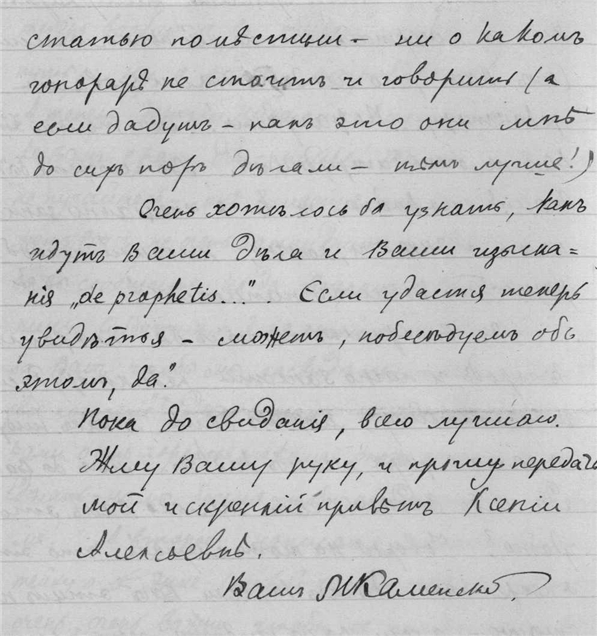 статью помѣстили – ни о какомъ
гонорарѣ не стоитъ и говорить (а
если дадутъ – какъ это они мнѣ
до сихъ поръ дѣлали – тѣмъ лучше!)
Очень хотѣлось бы узнать, какъ
идутъ Ваши дѣла и Ваши изыска=
нія „de prophetis..." Если удастся теперь
увидѣться – можетъ, побесѣдуемъ объ
этомъ, да?
Пока до свиданія, всего лучшаго.
Жму Вашу руку, и прошу передать
мой искренній привѣтъ Ксеніи
Алексѣевнѣ.
Вашъ